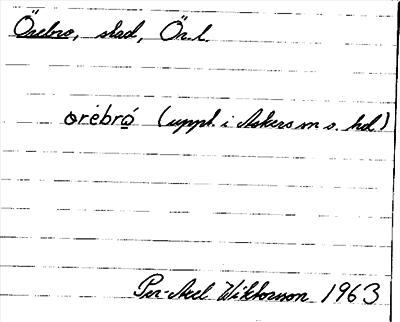 Örebro, stad, Ör. l.
orèbró (uppt. i Askers m s. hd.)
Per-Axel Wiktorsson 1963